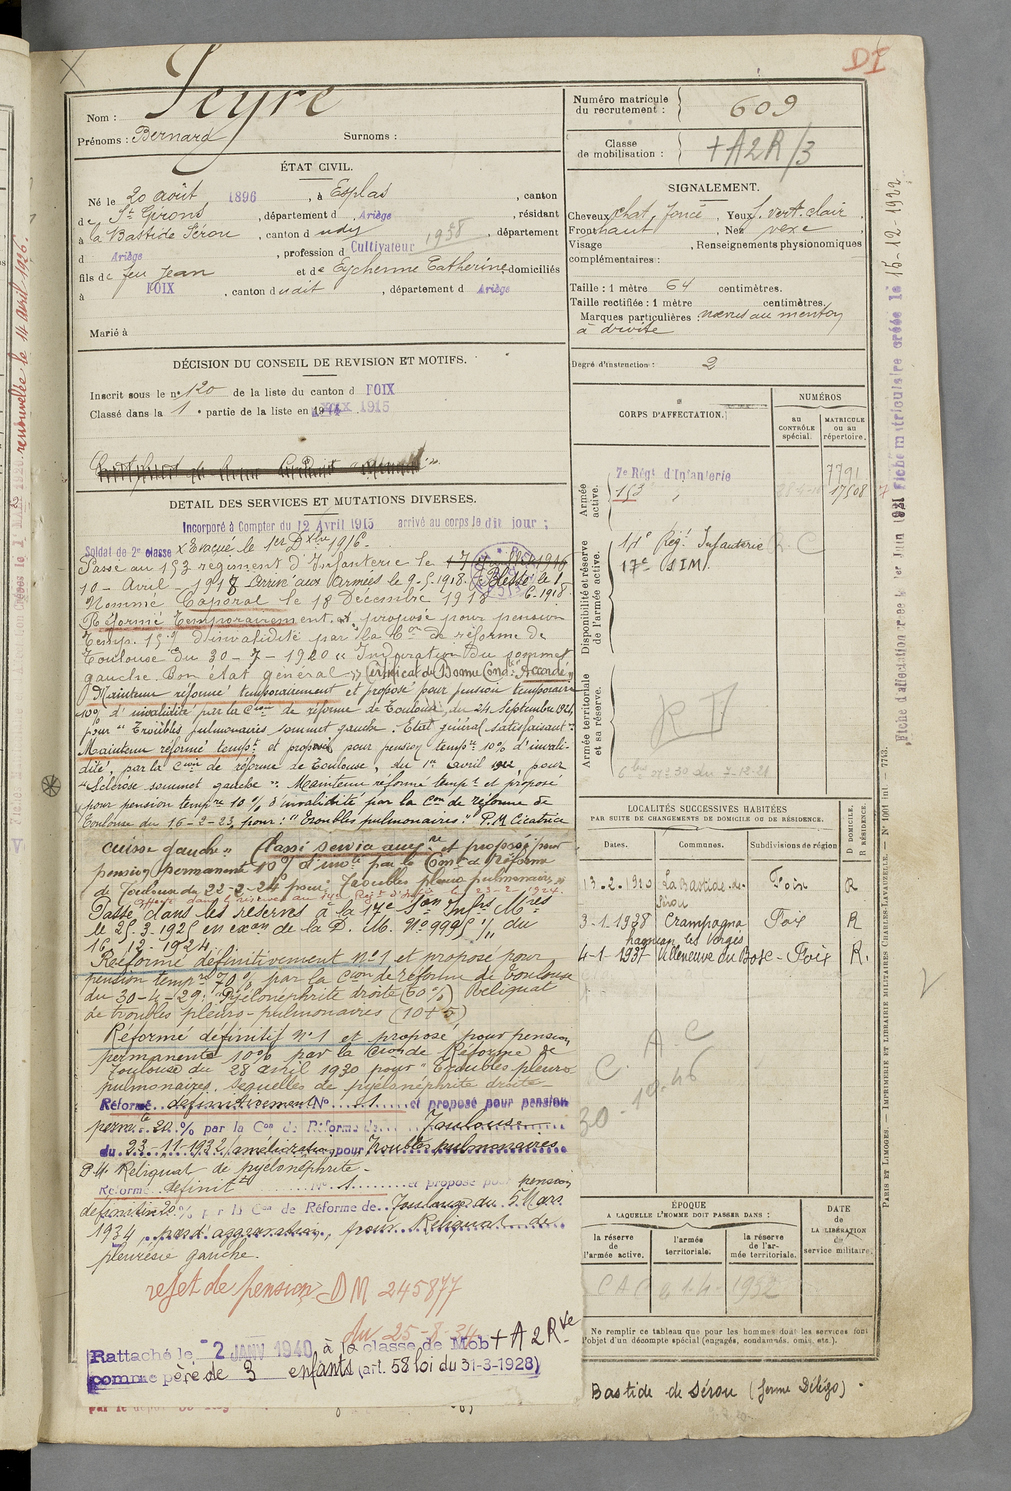 DI
Nom : Seyre
Prénoms : Bernard Surnoms :
Numéro matricule du recrutement : 609
Classe de mobilisation : + A2R/3
ÉTAT CIVIL.
Né le 20 août 1896, à Esplas, canton
de St Girons, département d Ariège, résidant
à la Bastide Sérou, canton d udij, département
d Ariège, profession d Cultivateur 1958
fils de feu Jean et de Eychenne Catherine domiciliés
à FOIX, canton dudit, département d Ariège
Marié à
SIGNALEMENT.
Cheveux chat. foncé, Yeux f. vert. clair.
Front haut, Nez vexe.
Visage , Renseignements physionomiques
complémentaires :
Taille : 1 mètre 64 centimètres.
Taille rectifiée : 1 mètre centimètres.
Marques particulières : nævus au menton
à droite
Degré d'instruction : 2
DÉCISION DU CONSEIL DE REVISION ET MOTIFS.
Inscrit sous le no 120 de la liste du canton d FOIX
Classé dans la 1e partie de la liste en 1915
DETAIL DES SERVICES ET MUTATIONS DIVERSES.
Incorporé à Compter du 12 Avril 1915 arrivé au corps le dit jour ;
Soldat de 2e classe x Evacué le 1er Dxbre 1916 -
Passé au 153 régiment d'Infanterie le
10 - Avril - 1918 Arrivé aux Armées le 9-5.1918. Blessé le 1-
6-1918.
Nommé Caporal le 18 Décembre 1918
Réformé Temporairement et proposé pour pension
Temp. 15% d'invalidité par la Con de réforme de
Toulouse du 30 - 7 - 1920 " Induration du sommet
gauche. Bon état général " Certificat de Bonne Condte Accordé
Maintenu réformé temporairement et proposé pour pension temporaire
10% d'invalidité par la Cion de réforme de Toulouse, du 24 Septembre 1921,
pour " Troubles pulmonaires sommet gauche. Etat général satisfaisant".
Maintenu réformé tempt et proposé pour pension tempre 10% d'invali-
dité, par la Cion de réforme de Toulouse, du 1er avril 1922 pour
"Sclérose sommet gauche". Maintenu réformé tempt et proposé
pour pension tempre 10% d'invalidité par la Con de réforme de
Toulouse du 16-2-23, pour : "Troubles pulmonaires." P.M. Cicatrice
cuisse gauche". Classé service auxre et proposé pour
pension permanente 10% d'invté par la Com. de réforme
de Toulouse du 22-2-24 pour Troubles pleuro pulmonaires"
Passé dans les réserves à la 17e Son Infrs Mres
le 25.3.1925 en exon de la D. M. No 9995 1/11 du
16-12-1924
Réformé définitivement no 1 et proposé pour
pension tempre 70% par la Cion de réforme de Toulouse
du 30-4-29: "Pyélonéphrite droite (60%) Reliquat
de troubles pleuro-pulmonaires (10+5)
Réformé définitif no 1 et proposé pour pension
permanente 10% par la Cion de Réforme de
Toulouse du 28 avril 1930 pour "Troubles pleuro
pulmonaires. Séquelles de pyélonéphrite droite -
Réformé définitivement No 1 et proposé pour pension
perm.te 20 % par la Con de Réforme de Toulouse
du 23-11-1932 (amélioration) pour Troubles pulmonaires
P.M. Reliquat de pyélonéphrite -
Réformé définitt No 1 et proposé pour pension
définitive 20 % par la Con de Réforme de Toulouse du 5 Mars
1934 par d'aggravation, pour Reliquat de
pleurésie gauche.
rejet de pension DM 245877
du 25-8-34
Rattaché le -2 JANV 1940 à la classe de Mob + A 2 Rve
comme père de 3 enfants (art. 58 loi du 31-3-1928)
CORPS D'AFFECTATION.
NUMÉROS
au CONTRÔLE spécial.
MATRICULE ou au répertoire.
Armée active.
7e Régt d'Infanterie 7791
153 " 17508
Disponibilité et réserve de l'armée active.
14e Régt Infanterie
17e (SIM)
Armée territoriale et sa réserve.
LOCALITÉS SUCCESSIVES HABITÉES
PAR SUITE DE CHANGEMENTS DE DOMICILE OU DE RÉSIDENCE.
Dates. Communes. Subdivisions de région D DOMICILE. R RÉSIDENCE.
13-2-1920 La Bastide-de-Sérou Foix R
3-1-1938 Crampagna Foix R
4-1-1937 Villeneuve du Bosc - Foix R.
A. C
C.
30-10-46
ÉPOQUE
A LAQUELLE L'HOMME DOIT PASSER DANS :
la réserve de l'armée active.
l'armée territoriale.
la réserve de l'armée territoriale.
DATE DE LA LIBÉRATION du service militaire.
Ne remplir ce tableau que pour les hommes dont les services font
l'objet d'un décompte spécial (engagés, condamnés, omis, etc.).
Bastide de Sérou (ferme Délégo).
PARIS ET LIMOGES. — IMPRIMERIE ET LIBRAIRIE MILITAIRES CHARLES-LAVAUZELLE. — No 1001 int. — 7713.
Fiche matriculaire créée le 15-12-1922
renouvelée le 14 avril 1926.